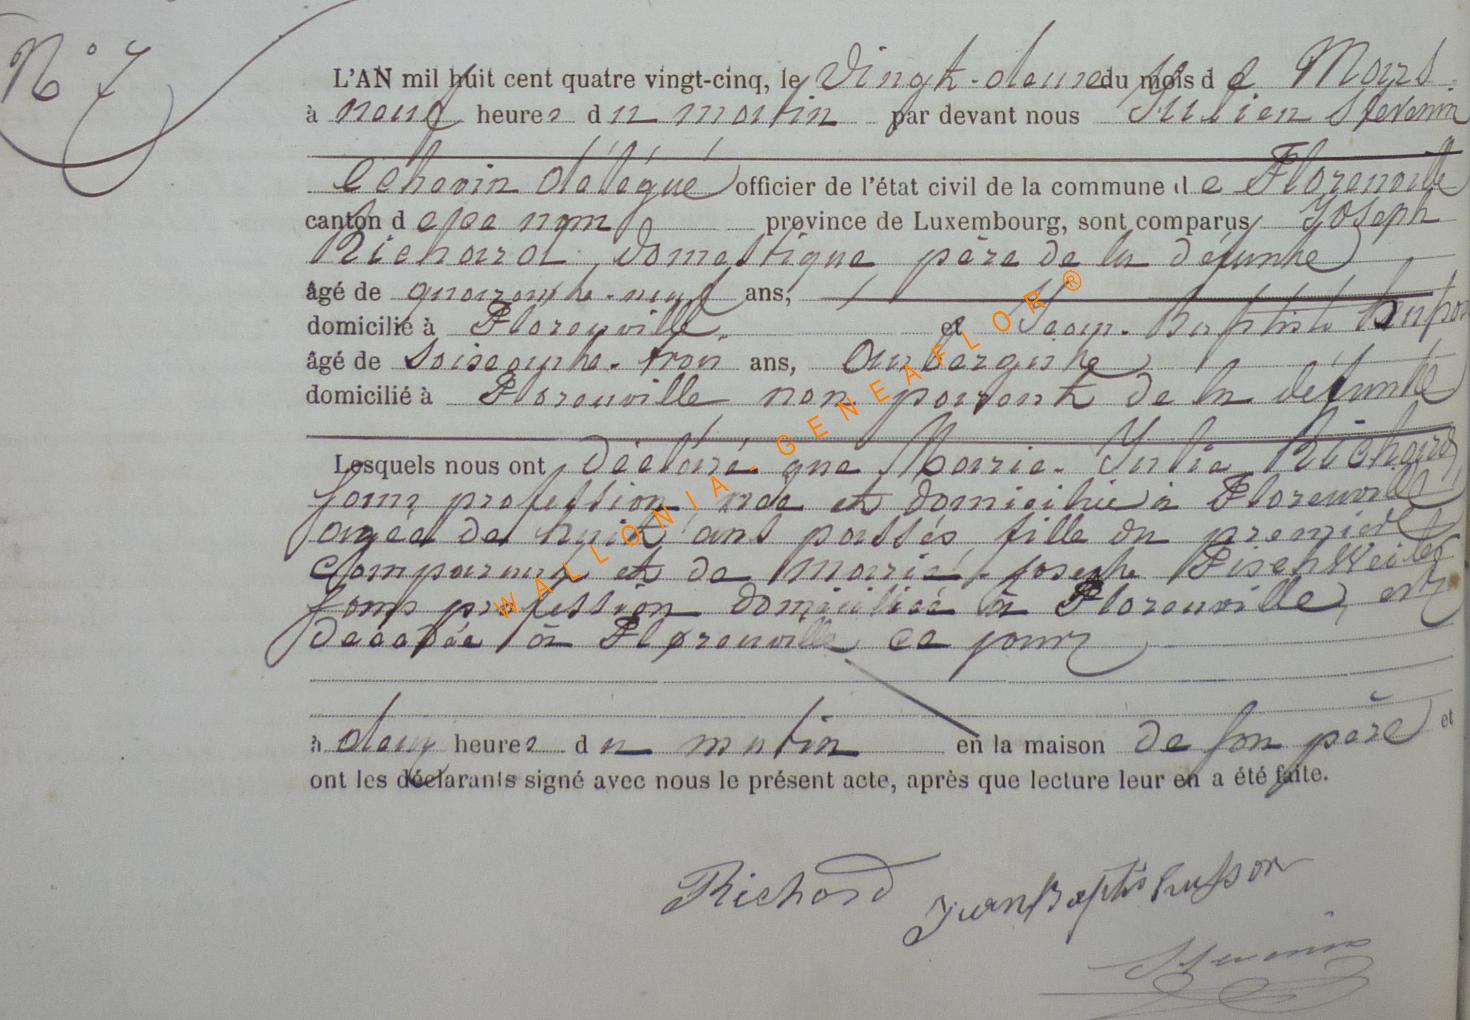 N° 7
L'AN mil huit cent quatre vingt-cinq, le Vingt-deux du mois de Mars
à neuf heures du matin par devant nous Julien Stévenin
Echevin délégué officier de l'état civil de la commune de Florenville
canton de ce nom province de Luxembourg, sont comparus Joseph
Richard, Domestique père de la défunte
âgé de quarante-neuf ans,
domicilié à Florenville et Jean-Baptiste
âgé de soixante-trois ans, Aubergiste
domicilié à Florenville non parent de la défunte
Lesquels nous ont déclaré que Marie-Julie Richard,
sans profession née et domiciliée à Florenville
agée de huit ans passés fille du premier
Comparant et de Marie-Josephe Fischweiler
sans profession domiciliée à Florenville, est
Décédée à Florenville ce jour
à deux heures du matin en la maison de son père et
ont les déclarants signé avec nous le présent acte, après que lecture leur en a été faite.
Richard Jean Baptis Husson
Stévenin
WALLONIA - GENEAFLOR ®